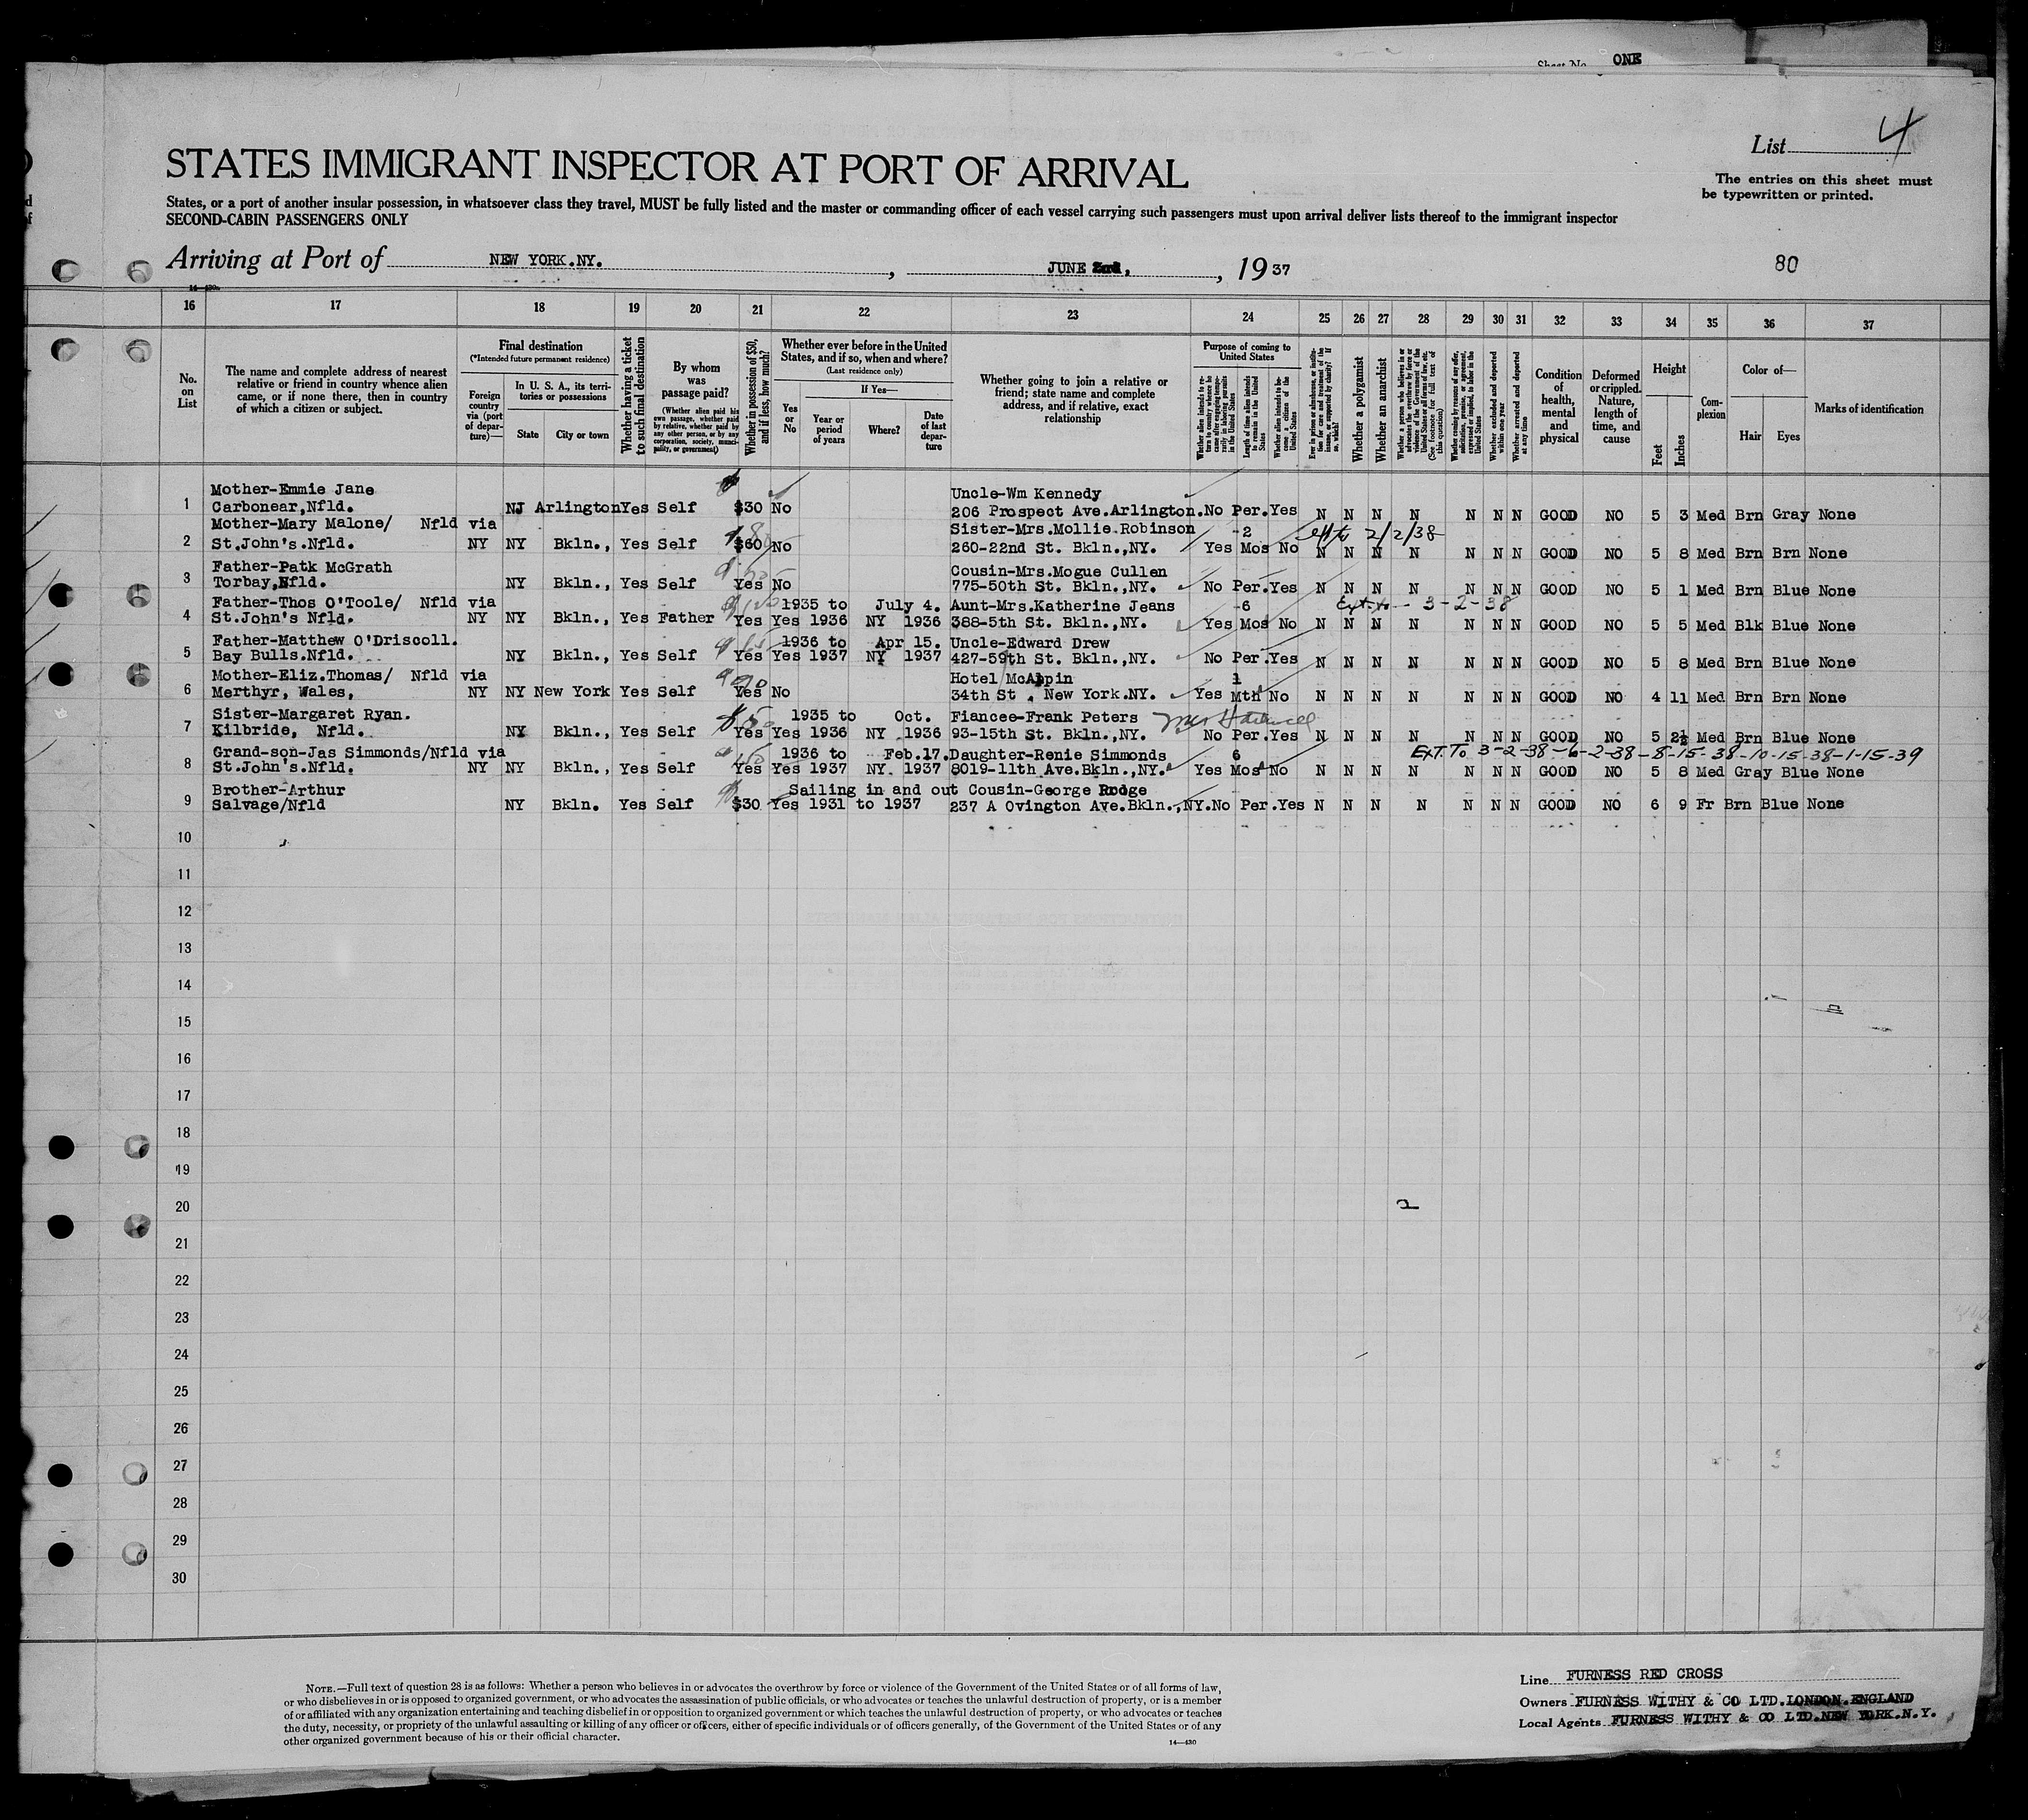 Sheet No. ONE
List 4
STATES IMMIGRANT INSPECTOR AT PORT OF ARRIVAL
The entries on this sheet must
be typewritten or printed.
States, or a port of another insular possession, in whatsoever class they travel, MUST be fully listed and the master or commanding officer of each vessel carrying such passengers must upon arrival deliver lists thereof to the immigrant inspector
SECOND-CABIN PASSENGERS ONLY
Arriving at Port of NEW YORK.NY. , JUNE , 19 37
80
16 17 18 19 20 21 22 23 24 25 26 27 28 29 30 31 32 33 34 35 36 37
No. on List
The name and complete address of nearest
relative or friend in country whence alien
came, or if none there, then in country
of which a citizen or subject.
Final destination
(*Intended future permanent residence)
Foreign country via (port of departure)—
In U. S. A., its territories or possessions
State
City or town
Whether having a ticket to such final destination
By whom was passage paid?
(Whether alien paid his own passage, whether paid by relative, whether paid by any other person, or by any corporation, society, municipality, or government)
Whether in possession of $50, and if less, how much?
Whether ever before in the United States, and if so, when and where?
(Last residence only)
Yes or No
If Yes—
Year or period of years
Where?
Date of last departure
Whether going to join a relative or
friend; state name and complete
address, and if relative, exact
relationship
Purpose of coming to United States
Whether alien intends to return to country whence he came after engaging temporarily in laboring pursuits in the United States
Length of time alien intends to remain in the United States
Whether alien intends to become a citizen of the United States
Ever in prison or almshouse, or institution for care and treatment of the insane, or supported by charity? If so, which?
Whether a polygamist
Whether an anarchist
Whether a person who believes in or advocates the overthrow by force or violence of the Government of the United States or of all forms of law, etc. (See footnote for full text of this question)
Whether coming by reasons of any offer, solicitation, promise, or agreement, expressed or implied, to labor in the United States
Whether excluded and deported within one year
Whether arrested and deported at any time
Condition of health, mental and physical
Deformed or crippled. Nature, length of time, and cause
Height
Feet
Inches
Complexion
Color of—
Hair
Eyes
Marks of identification
Mother-Emmie Jane Uncle-Wm Kennedy
1 Carbonear,Nfld. NJ Arlington Yes Self $30 No 206 Prospect Ave.Arlington. No Per. Yes N N N N N N N GOOD NO 5 3 Med Brn Gray None
Mother-Mary Malone/ Nfld via Sister-Mrs.Mollie Robinson 2 2/2/38
2 St.John's.Nfld. NY NY Bkln., Yes Self $60 No 260-22nd St. Bkln.,NY. Yes Mos No N N N N N N N GOOD NO 5 8 Med Brn Brn None
Father-Patk McGrath Cousin-Mrs.Mogue Cullen
3 Torbay,Nfld. NY Bkln., Yes Self Yes No 775-50th St. Bkln.,NY. No Per. Yes N N N N N N N GOOD NO 5 1 Med Brn Blue None
Father-Thos O'Toole/ Nfld via 1935 to July 4. Aunt-Mrs.Katherine Jeans 6 Ext. to - 3-2-38
4 St.John's Nfld. NY NY Bkln., Yes Father Yes Yes 1936 NY 1936 388-5th St. Bkln.,NY. Yes Mos No N N N N N N N GOOD NO 5 5 Med Blk Blue None
Father-Matthew O'Driscoll. 1936 to Apr 15. Uncle-Edward Drew
5 Bay Bulls.Nfld. NY Bkln., Yes Self Yes Yes 1937 NY 1937 427-59th St. Bkln.,NY. No Per. Yes N N N N N N N GOOD NO 5 8 Med Brn Blue None
Mother-Eliz.Thomas/ Nfld via Hotel McAlpin 1
6 Merthyr, Wales, NY NY New York Yes Self Yes No 34th St , New York.NY. Yes Mth No N N N N N N N GOOD NO 4 11 Med Brn Brn None
Sister-Margaret Ryan. 1935 to Oct. Fiancee-Frank Peters
7 Kilbride, Nfld. NY Bkln., Yes Self Yes Yes 1936 NY 1936 93-15th St. Bkln.,NY. No Per. Yes N N N N N N N GOOD NO 5 2½ Med Brn Blue None
Grand-son-Jas Simmonds/Nfld via 1936 to Feb.17. Daughter-Renie Simmonds 6 EXT. To 3-2-38-6-2-38-8-15-38-10-15-38-1-15-39
8 St.John's.Nfld. NY NY Bkln., Yes Self Yes Yes 1937 NY. 1937 8019-11th Ave.Bkln.,NY. Yes Mos No N N N N N N N GOOD NO 5 8 Med Gray Blue None
Brother-Arthur Sailing in and out Cousin-George Rodge
9 Salvage/Nfld NY Bkln. Yes Self $30 Yes 1931 to 1937 237 A Ovington Ave.Bkln.,NY. No Per. Yes N N N N N N N GOOD NO 6 9 Fr Brn Blue None
10
11
12
13
14
15
16
17
18
19
20
21
22
23
24
25
26
27
28
29
30
NOTE.—Full text of question 28 is as follows: Whether a person who believes in or advocates the overthrow by force or violence of the Government of the United States or of all forms of law,
or who disbelieves in or is opposed to organized government, or who advocates the assassination of public officials, or who advocates or teaches the unlawful destruction of property, or is a member
of or affiliated with any organization entertaining and teaching disbelief in or opposition to organized government or which teaches the unlawful destruction of property, or who advocates or teaches
the duty, necessity, or propriety of the unlawful assaulting or killing of any officer or officers, either of specific individuals or of officers generally, of the Government of the United States or of any
other organized government because of his or their official character.
14—430
Line FURNESS RED CROSS
Owners FURNESS WITHY & CO LTD.LONDON.ENGLAND
Local Agents FURNESS WITHY & CO LTD.NEW YORK.N.Y.